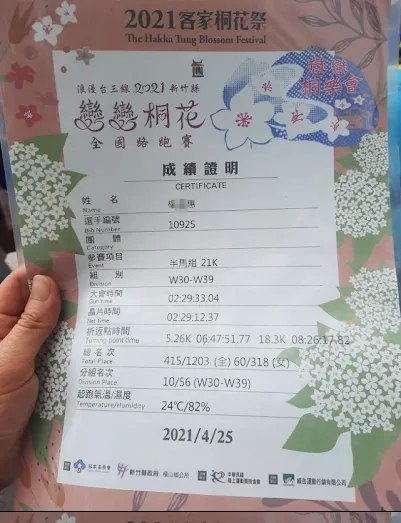 2021客家桐花祭
The Hakka Tung Blossom Festival
浪漫台三線 2021 新竹縣
戀戀桐花
全國路跑賽
成績證明
CERTIFICATE
姓 名
Name
選手編號 10925
Bib Number
團 體
Category
參賽項目 半馬組 21K
Event
組 別 W30-W39
Division
大會時間 02:29:33.04
Gun time
晶片時間 02:29:12.37
Net time
折返點時間 5.26K 06:47:51.77 18.3K 08:26:17.82
Turning point time
總名次 415/1203 (全) 60/318 (女)
Total Place
分組名次 10/56 (W30-W39)
Division Place
起跑氣溫/濕度 24℃/82%
Temperature/Humidity
2021/4/25
新竹縣政府